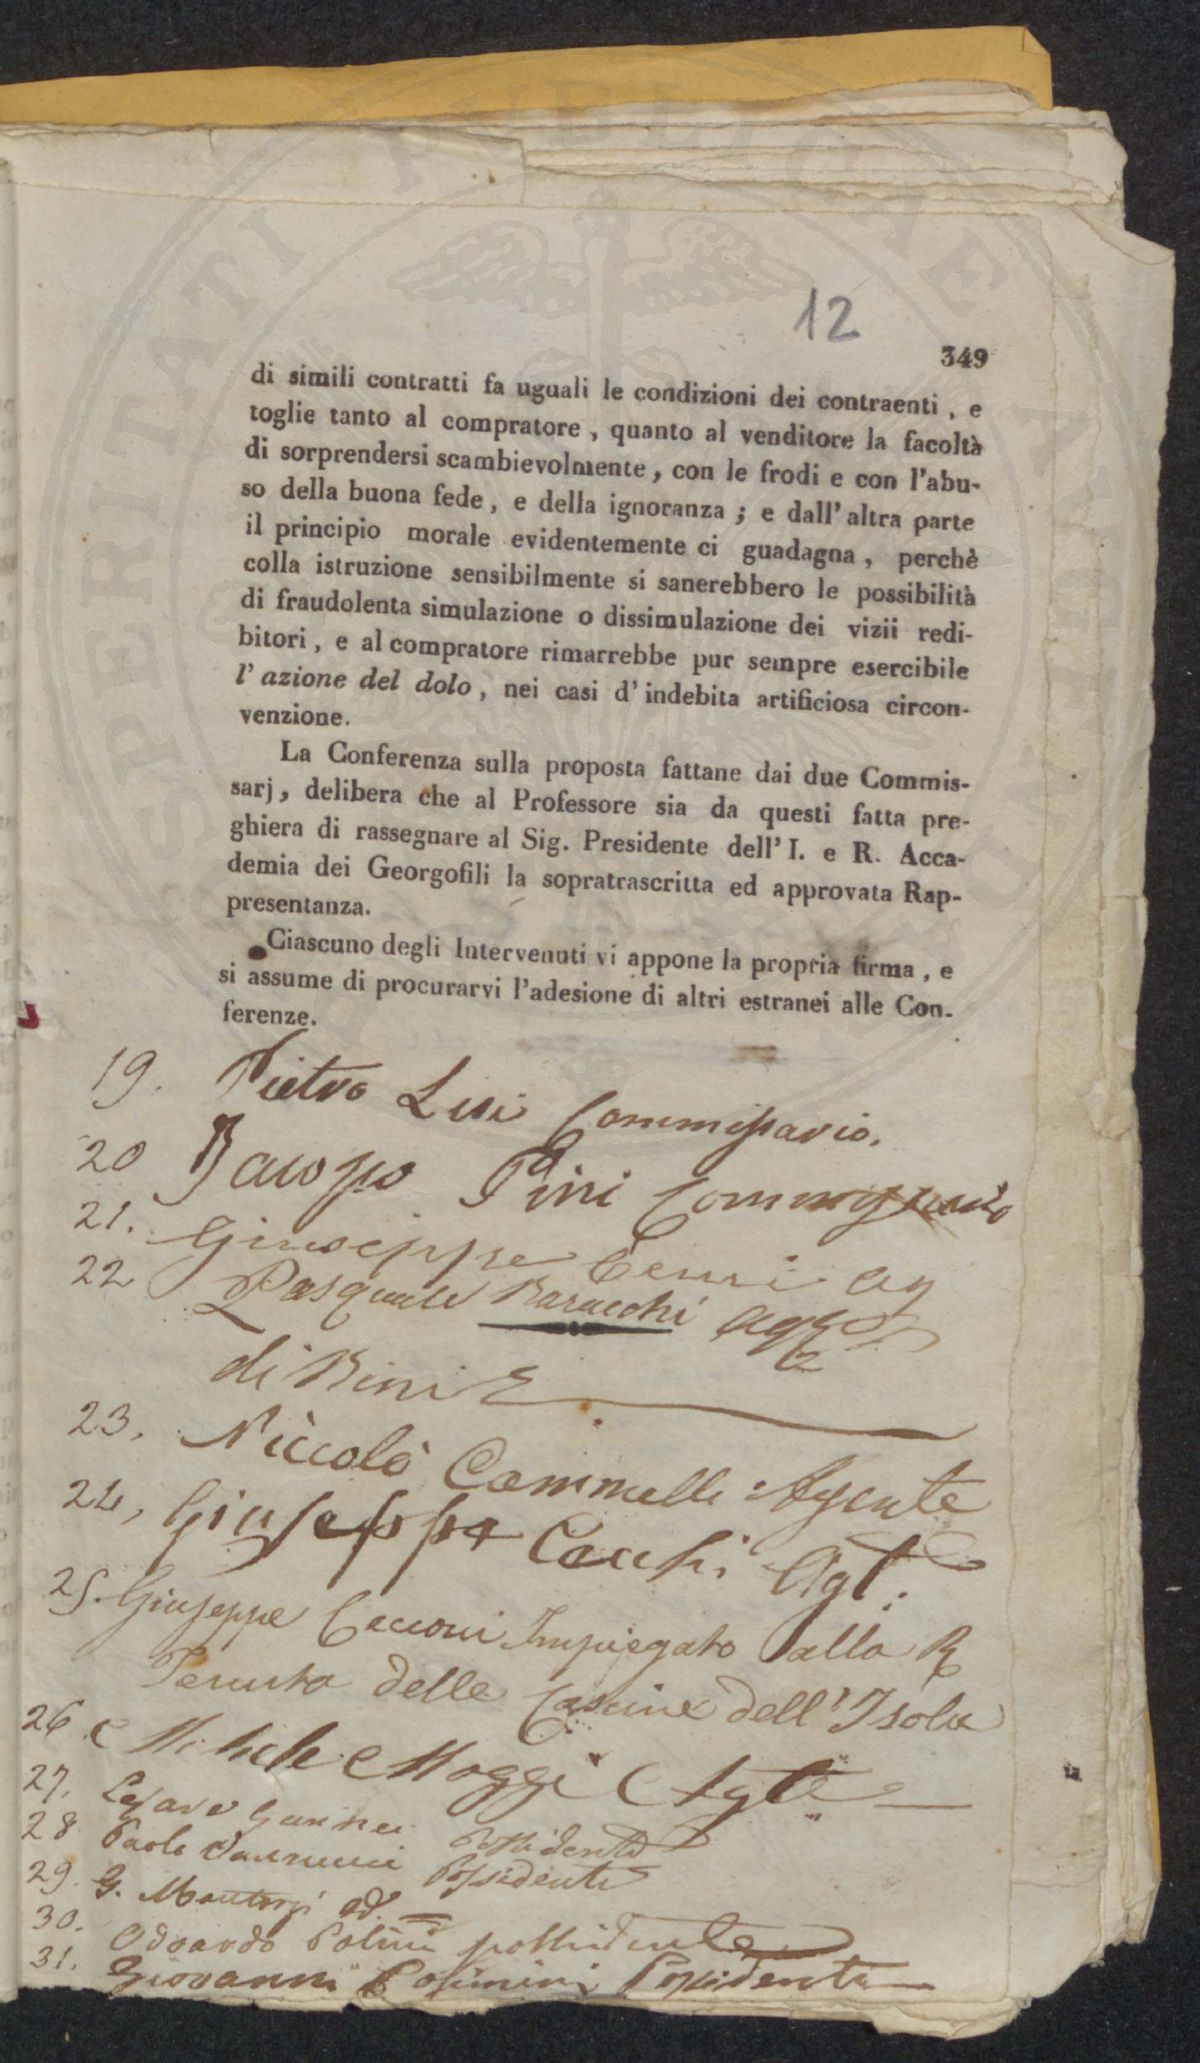 12
349
di simili contratti fa uguali le condizioni dei contraenti, e
toglie tanto al compratore, quanto al venditore la facoltà
di sorprendersi scambievolmente, con le frodi e con l'abu-
so della buona fede, e della ignoranza; e dall'altra parte
il principio morale evidentemente ci guadagna, perchè
colla istruzione sensibilmente si sanerebbero le possibilità
di fraudolenta simulazione o dissimulazione dei vizii redi-
bitori, e al compratore rimarrebbe pur sempre esercibile
l'azione del dolo, nei casi d'indebita artificiosa circon-
venzione.
La Conferenza sulla proposta fattane dai due Commis-
sarj, delibera che al Professore sia da questi fatta pre-
ghiera di rassegnare al Sig. Presidente dell'I. e R. Acca-
demia dei Georgofili la sopratrascritta ed approvata Rap-
presentanza.
Ciascuno degli Intervenuti vi appone la propria firma, e
si assume di procurarvi l'adesione di altri estranei alle Con-
ferenze.
19. Pietro Commissario.
20 Jacopo Pini
21. Giuseppe ag
22 Pasquale Baracchi
di Bini
23. Niccolò Cammelli Agente
24, Giuseppe Cecchi Agt.
25. Giuseppe Cecconi Impiegato alla R
Tenuta delle Cascine dell'Isola
26. Michele Moggi Agte
27. Possidente
28 Paolo Possidente
29. G.
30. Odoardo possidente
31. Giovanni Cosimini Possidente